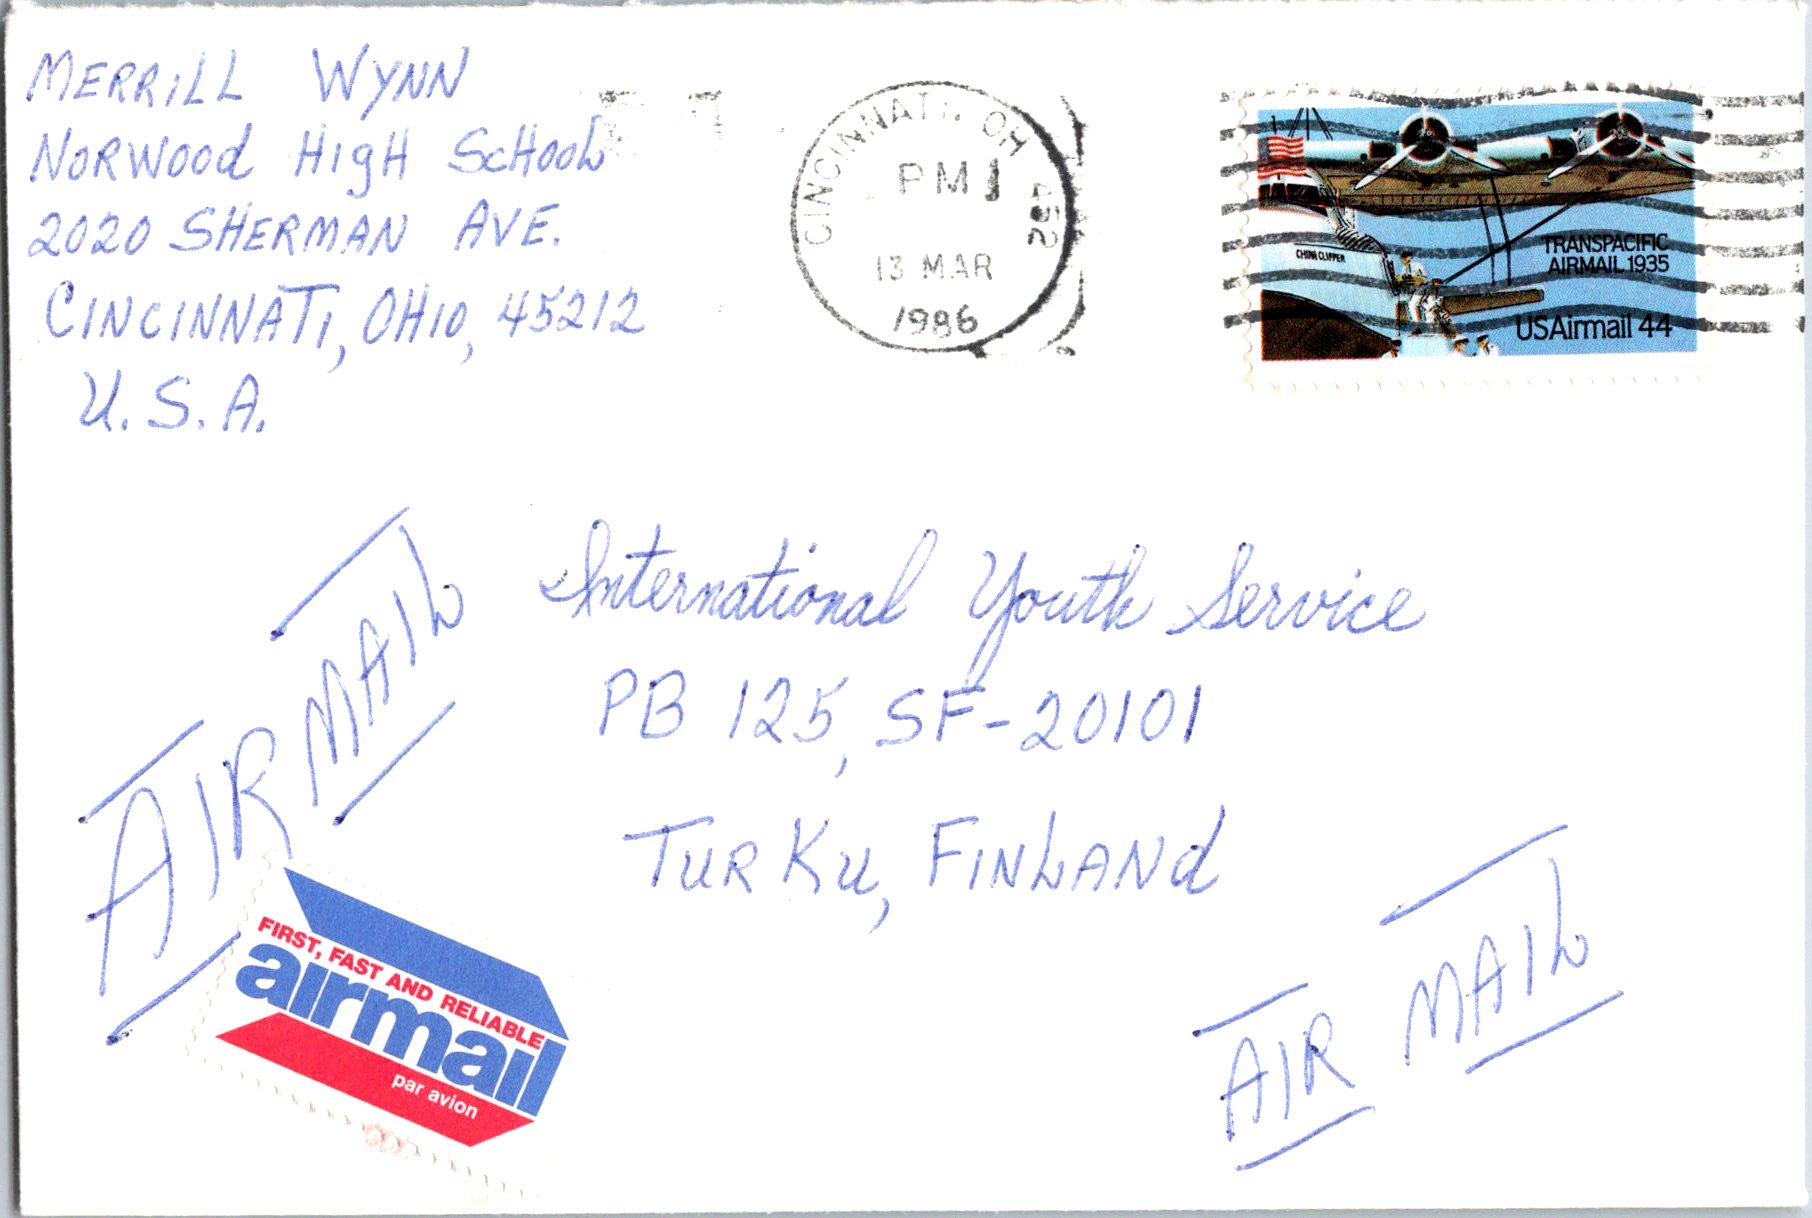 MERRiLL WYNN
NORWOOd HigH ScHOOL
2020 SHERMAN AVE.
CINCINNATi, OHio, 45212
U.S.A.
CINCINNATI, OH 452
PM
13 MAR
1986
CHINA CLIPPER
TRANSPACIFIC
AIRMAIL 1935
USAirmail 44
International Youth Service
PB 125, SF-20101
TURKu, FINLANd
AIR MAIL
FIRST, FAST AND RELIABLE
airmail
par avion
AIR MAIL